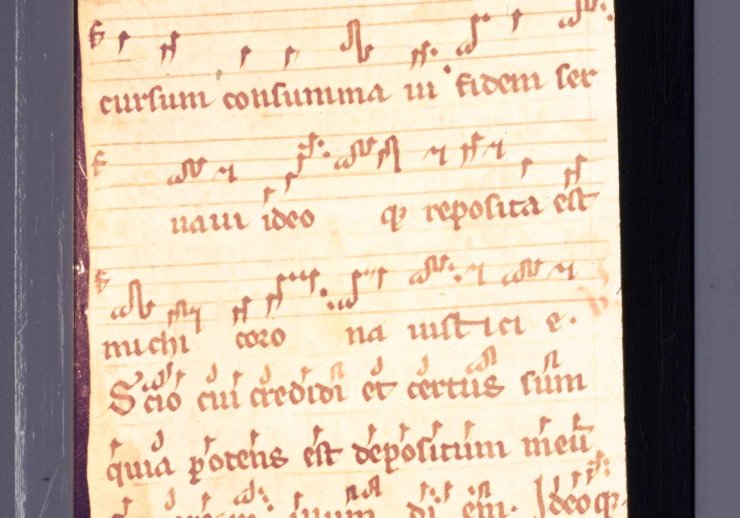 cursum consumma ui fidem ser
uaui ideo qꝫ reposita est
michi coro na iusticie.
Scio cui credidi et certus sum
quia potens est depositum meū
illum diem. Ideoqꝫ